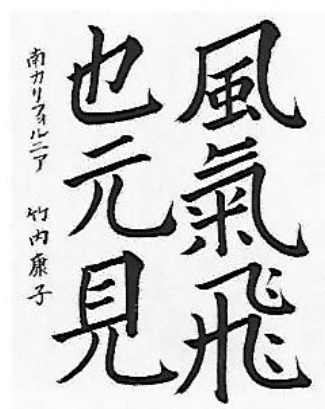 風氣飛
也元見
南カリフォルニア 竹内康子